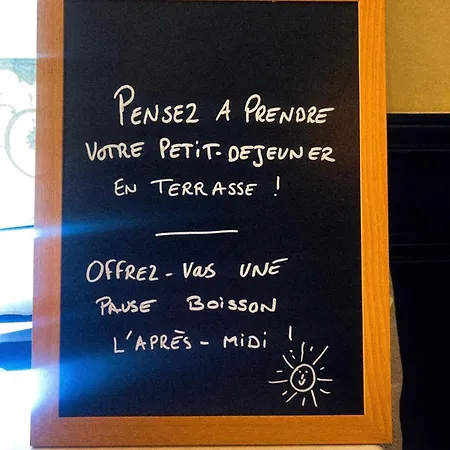 PENSEZ A PRENDRE
VOTRE PETIT-DEJEUNER
EN TERRASSE !
OFFREZ-VOUS UNE
PAUSE BOISSON
L'APRÈS-MIDI !